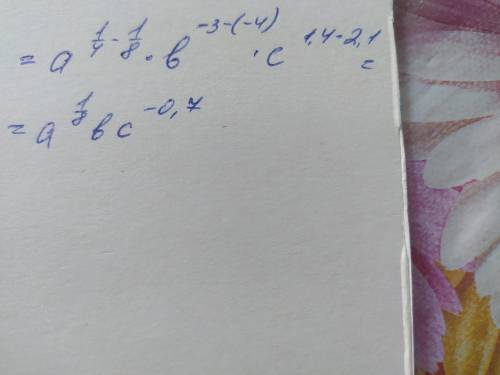 = a^{\frac{1}{4}-\frac{1}{8}} · b^{-3-(-4)} · c^{1,4-2,1} =
= a^{\frac{1}{8}} b c^{-0,7}